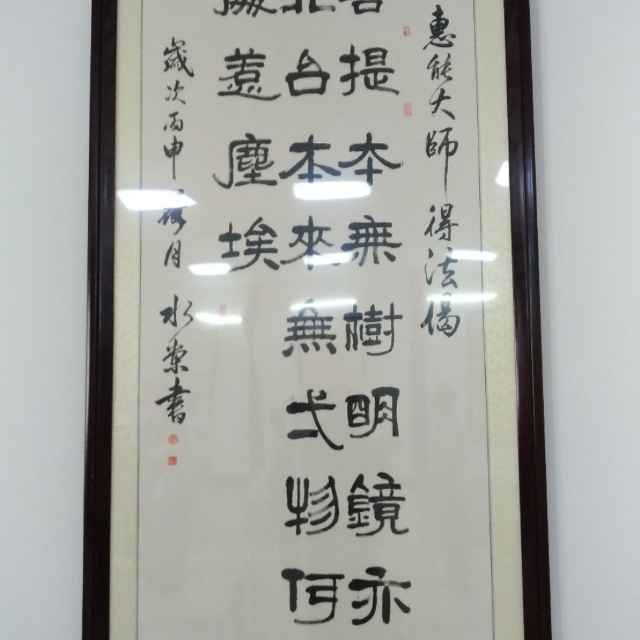 惠能大師得法偈
菩提本無樹明鏡亦
非台本來無弌物何
處惹塵埃
歲次丙申月 水書